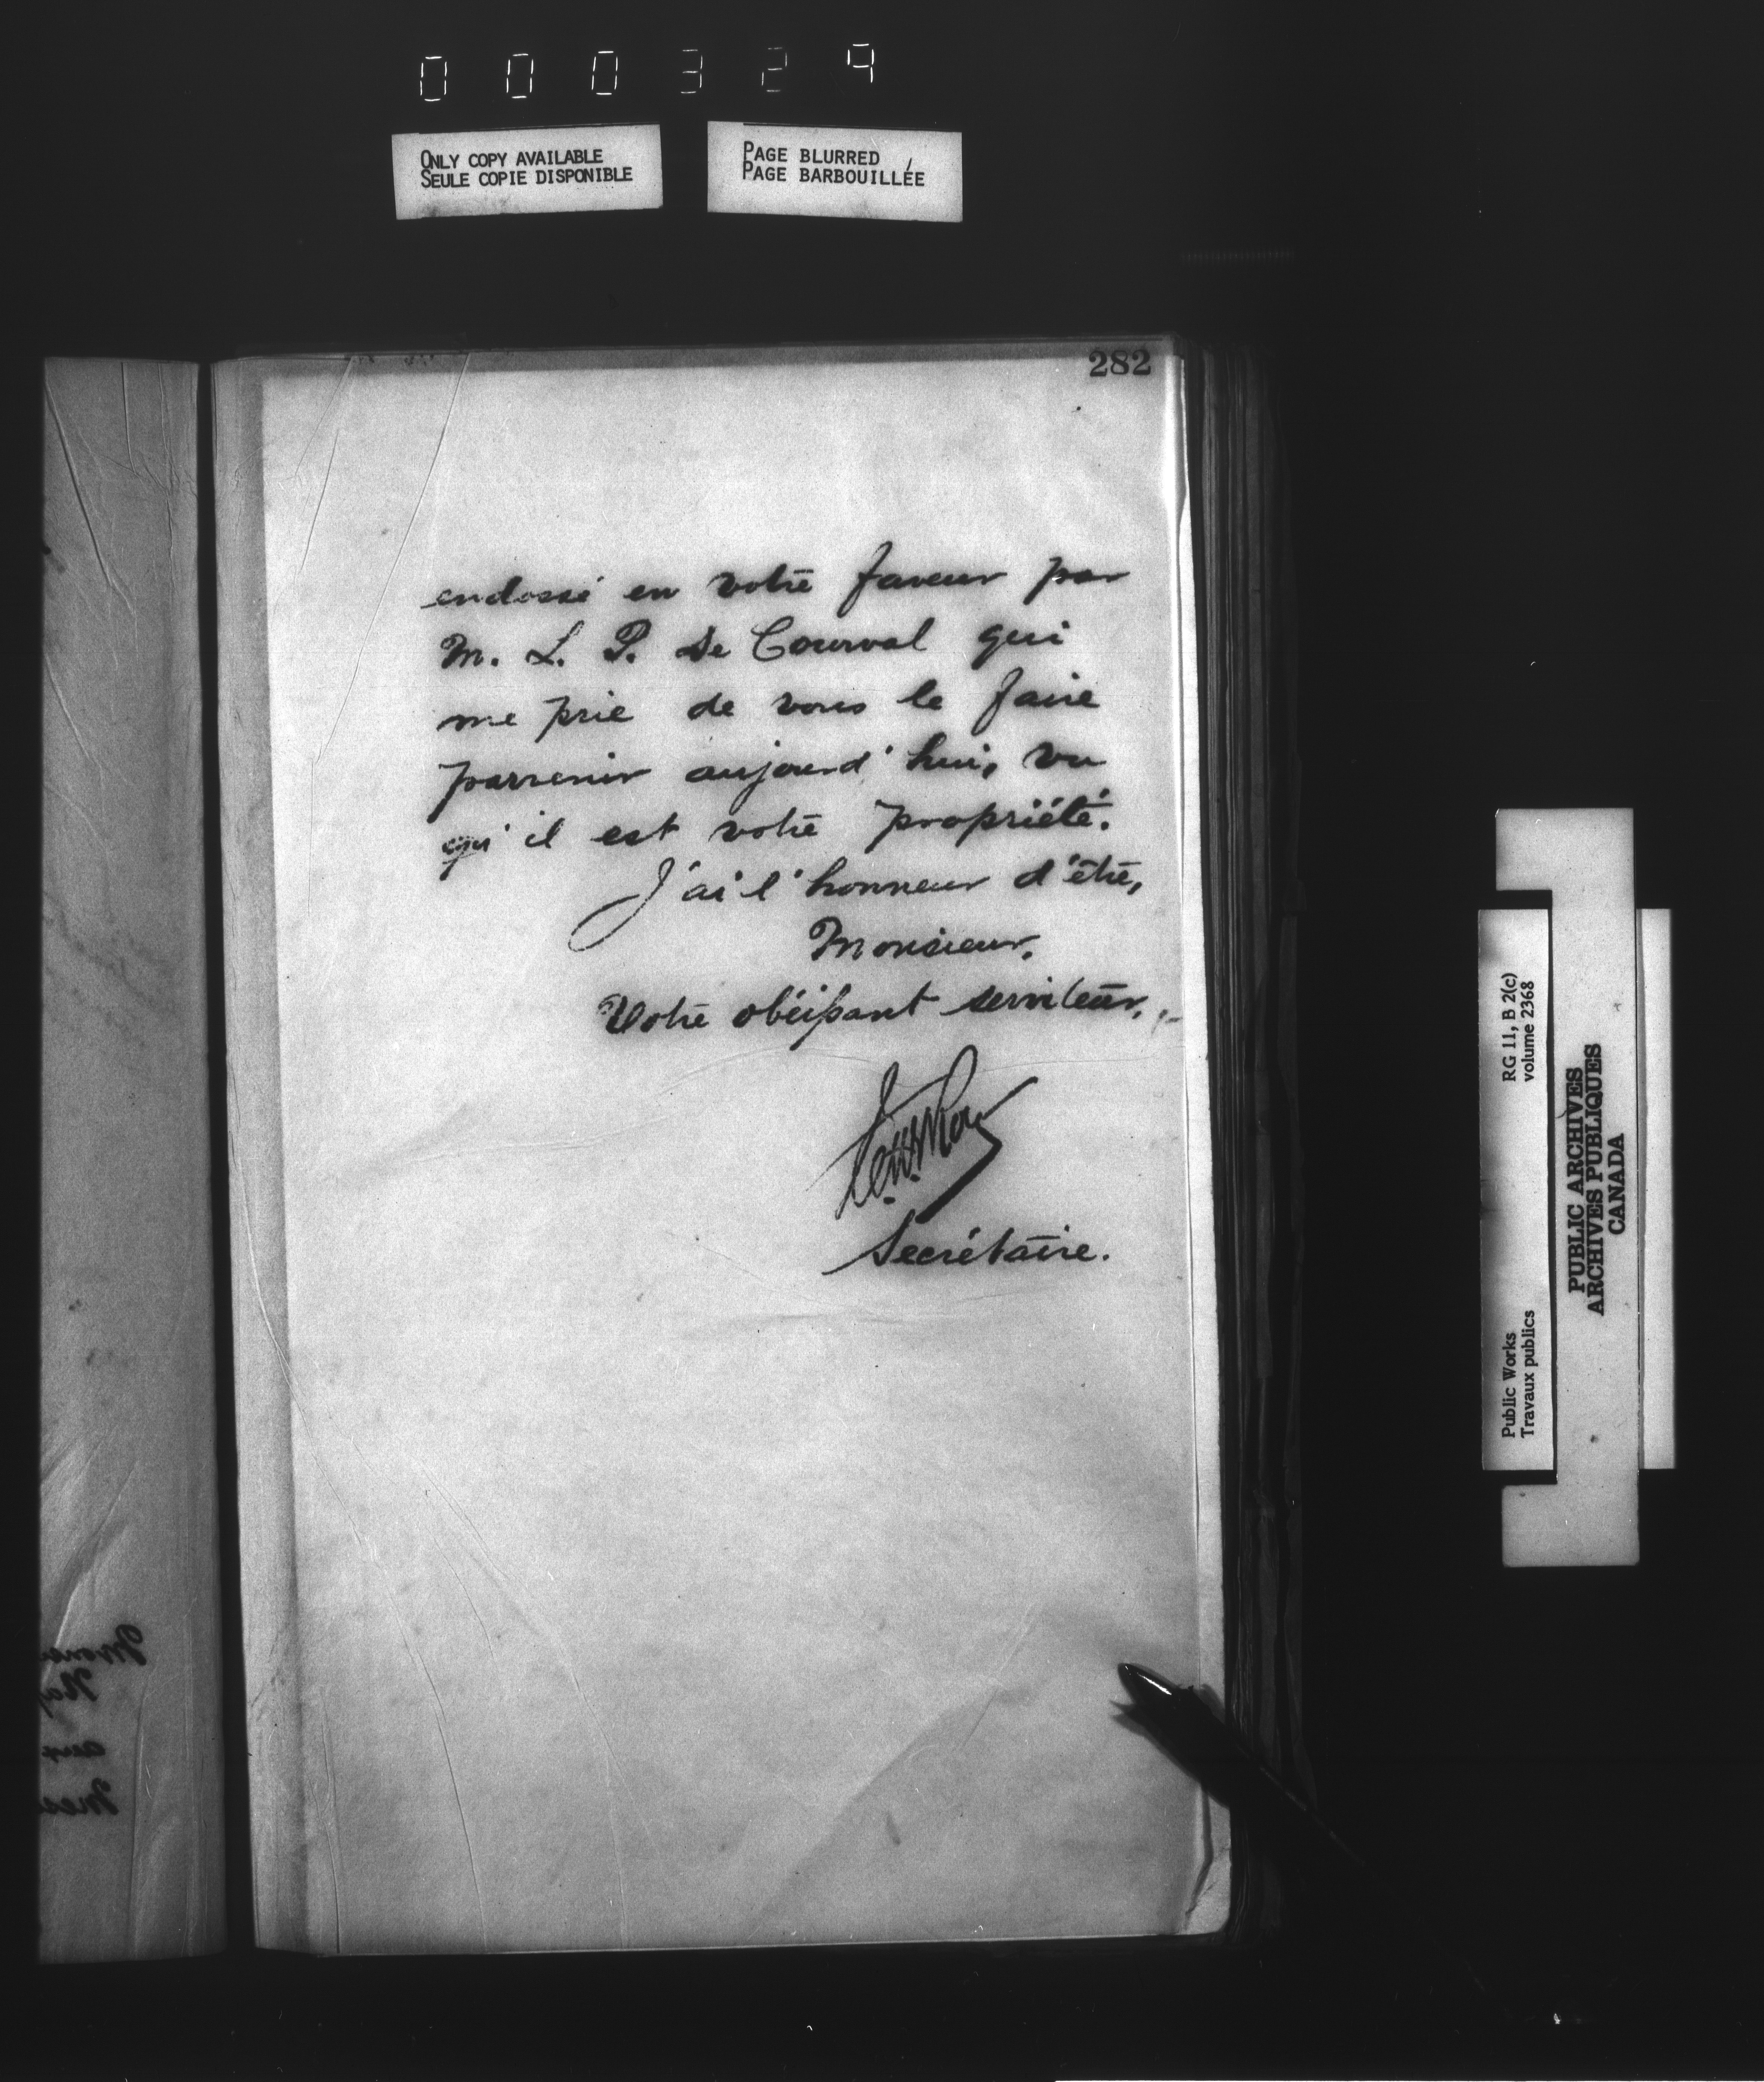 000329
ONLY COPY AVAILABLE
SEULE COPIE DISPONIBLE
PAGE BLURRED
PAGE BARBOUILLÉE
282
endossé en votre faveur par
M. L. P. de Courval qui
me prie de vous le faire
parvenir aujourd'hui, vu
qu'il est votre propriété.
J'ai l'honneur d'être,
Monsieur,
Votre obéissant serviteur,
Secrétaire.
RG 11, B 2(c)
volume 2368
Public Works
Travaux publics
PUBLIC ARCHIVES
ARCHIVES PUBLIQUES
CANADA